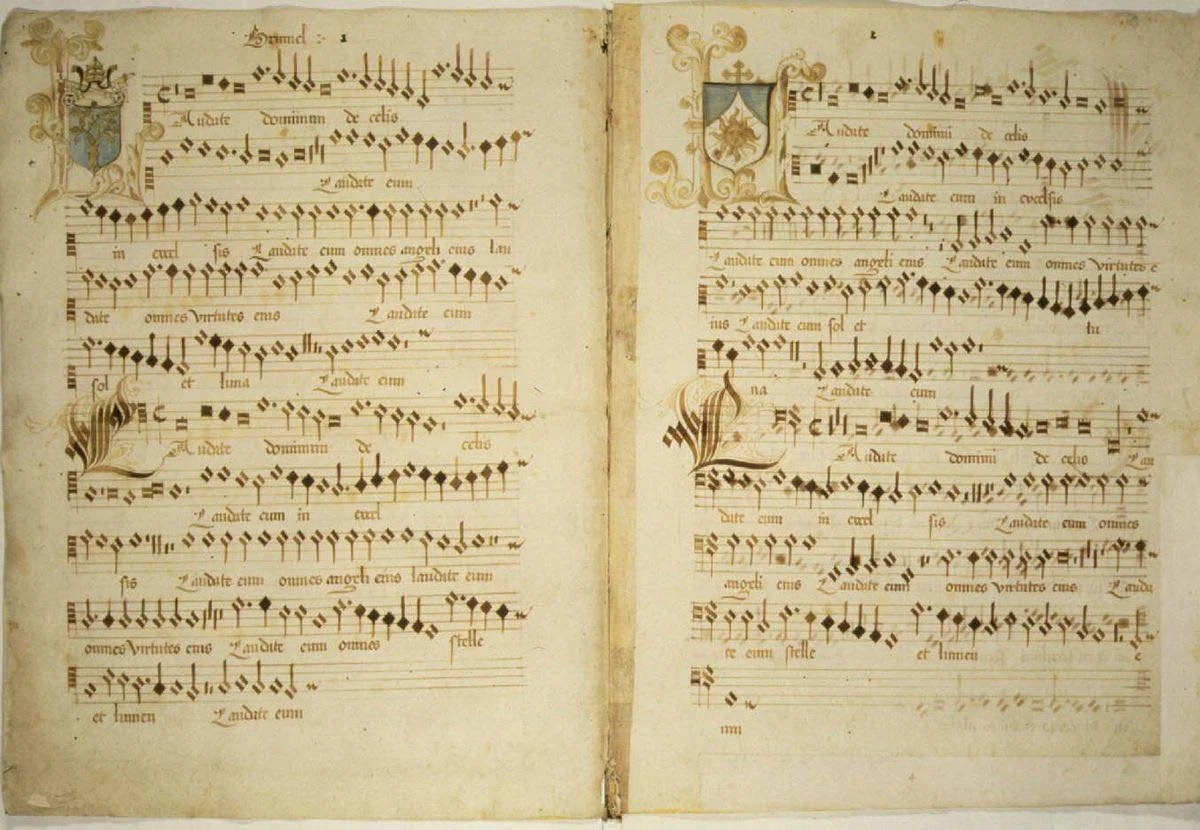 Brumel : 1
Laudate dominum de celis
Laudate eum
in excel sis Laudate eum omnes angeli eius lau
date omnes virtutes eius Laudate eum
sol et luna Laudate eum
Laudate dominum de celis
Laudate eum in excel
sis Laudate eum omnes angeli eius laudate eum
omnes virtutes eius Laudate eum omnes stelle
et lumen Laudate eum
1
Laudate dominū de celis
Laudate eum in excelsis
Laudate eum omnes angeli eius Laudate eum omnes virtutes e
ius Laudate eum sol et lu
na Laudate eum
Laudate dominū de celis Lau
date eum in excel sis Laudate eum omnes
angeli eius Laudate eum omnes virtutes eius Lauda
te eum stelle et lumen e
um